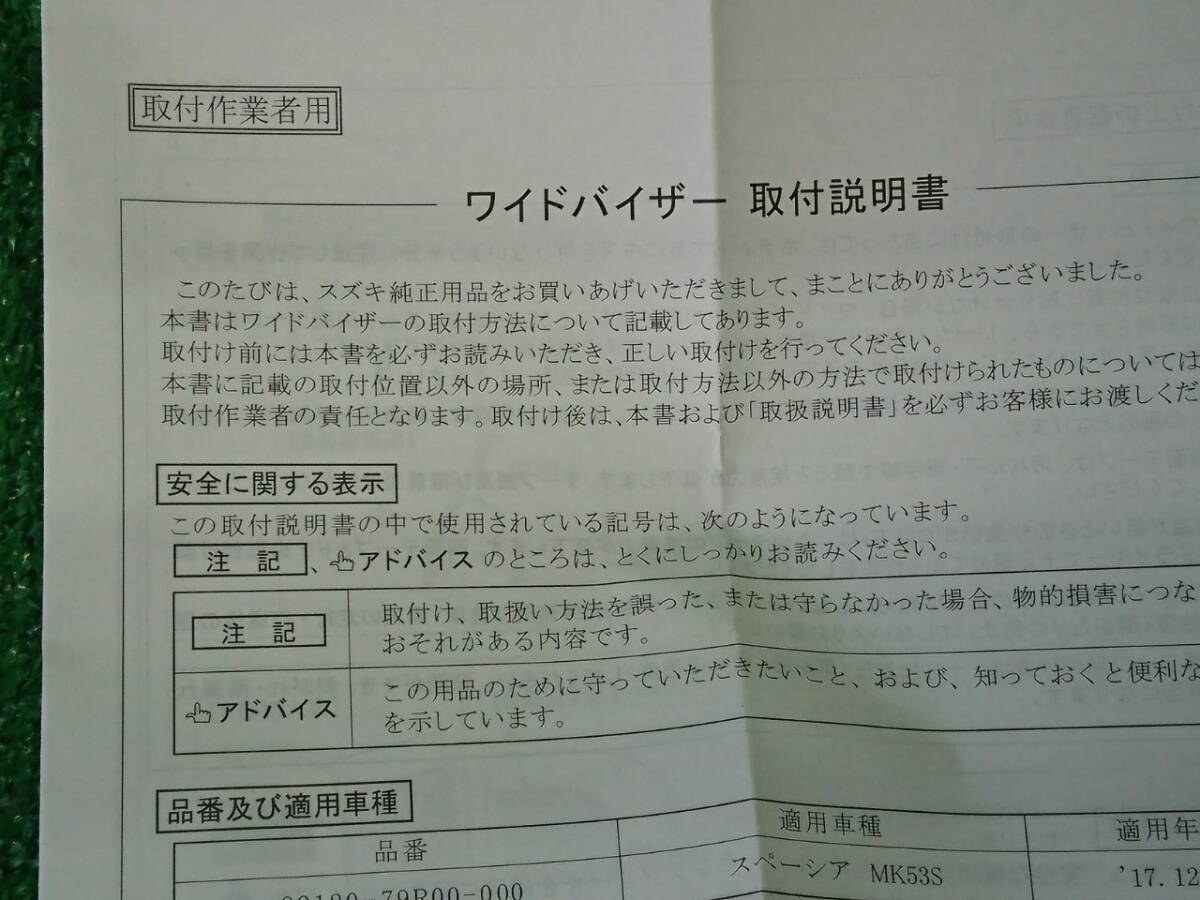 取付作業者用
ワイドバイザー 取付説明書
このたびは、スズキ純正用品をお買いあげいただきまして、まことにありがとうございました。
本書はワイドバイザーの取付方法について記載してあります。
取付け前には本書を必ずお読みいただき、正しい取付けを行ってください。
本書に記載の取付位置以外の場所、または取付方法以外の方法で取付けられたものについては
取付作業者の責任となります。取付け後は、本書および「取扱説明書」を必ずお客様にお渡しくだ
安全に関する表示
この取付説明書の中で使用されている記号は、次のようになっています。
注 記 、アドバイス のところは、とくにしっかりお読みください。
注 記 取付け、取扱い方法を誤った、または守らなかった場合、物的損害につな
おそれがある内容です。
アドバイス この用品のために守っていただきたいこと、および、知っておくと便利な
を示しています。
品番及び適用車種
品番 適用車種 適用年
99180-79R00-000 スペーシア MK53S '17.12